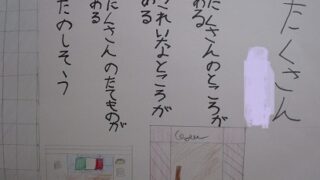 たくさん
たくさんのところが
ある
きれいなところが
ある
たくさんのたてものが
ある
たのしそう